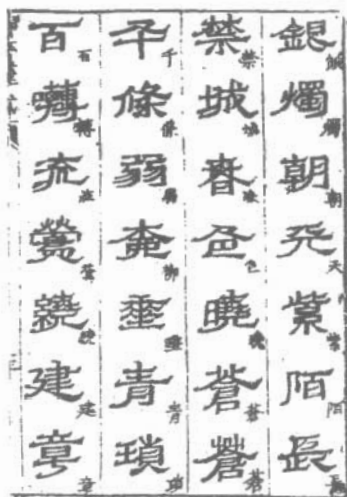 銀燭朝天紫陌長
禁城春色曉蒼蒼
千條弱柳垂青瑣
百囀流鶯繞建章